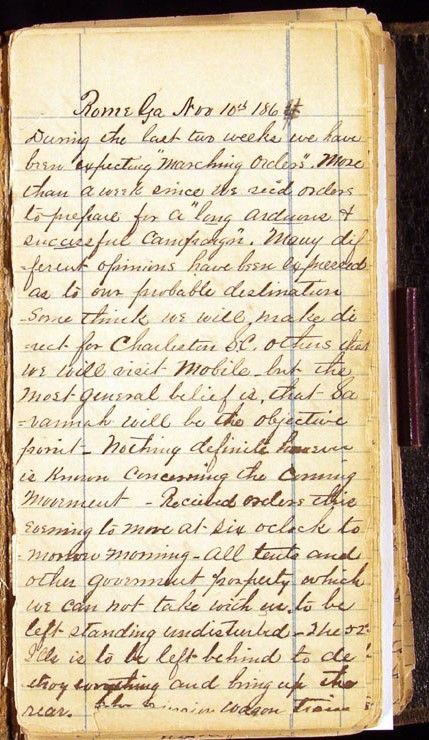 Rome Ga Nov 10th 1864
During the last two weeks we have
been expecting "Marching Orders". More
than a week since we recd orders
to prepare for a "long arduous &
successful campaign". Many dif
-ferent opinions have been expressed
as to our probable destination
-Some think we will make di
-rect for Charleston S.C. others that
we will visit Mobile - but the
most general belief is, that Sa
-vannah will be the objective
point - Nothing definite however
is known concerning the coming
movement - Recieved orders this
evening to move at six oclock to
-morrow morning - All tents and
other goverment property which
we can not take with us, to be
left standing undisturbed - The 52d
Ills is to be left behind to de
stroy everything and bring up the
rear. train